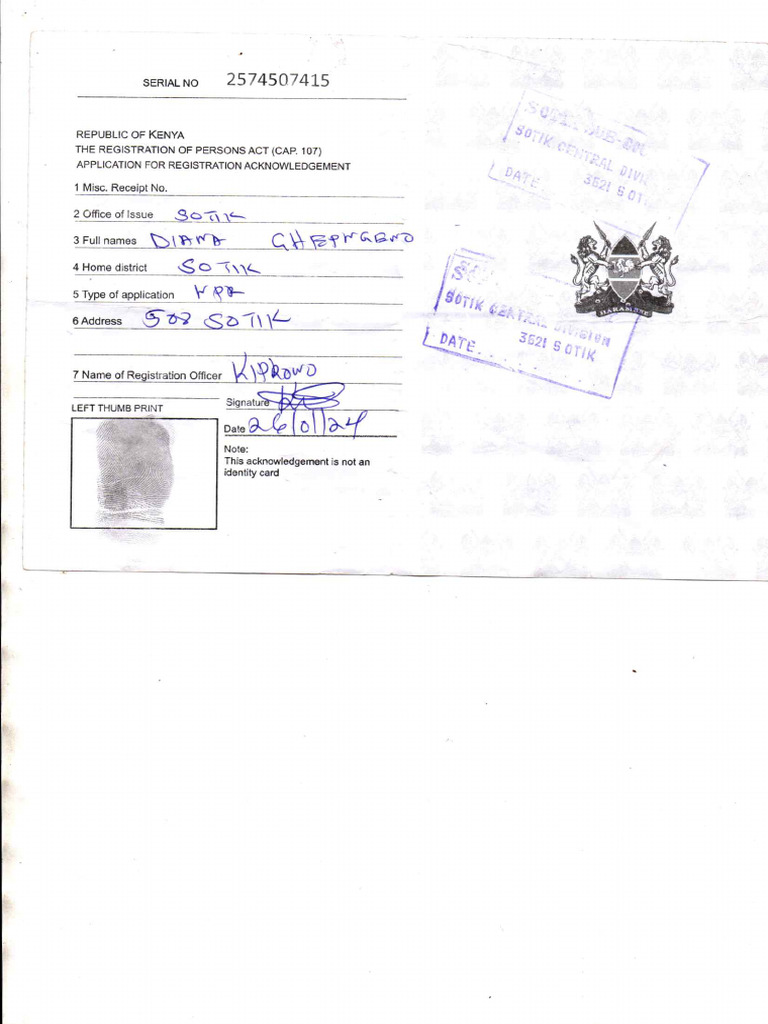 SERIAL NO 2574507415
REPUBLIC OF KENYA
THE REGISTRATION OF PERSONS ACT (CAP. 107)
APPLICATION FOR REGISTRATION ACKNOWLEDGEMENT
1 Misc. Receipt No.
2 Office of Issue SOTIK
3 Full names DIANA CHEPNGENO
4 Home district SOTIK
5 Type of application NPR
6 Address 508 SOTIK
7 Name of Registration Officer KIPRONO
Signature
LEFT THUMB PRINT
Date 26/01/24
Note:
This acknowledgement is not an
identity card
SOTIK CENTRAL
DATE 3621 SOTIK
HARAMBEE
SOTIK CENTRAL DIVISION
3621 SOTIK
DATE